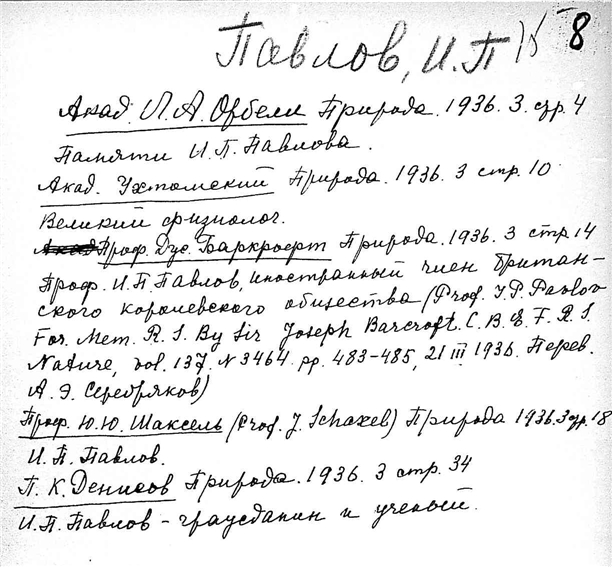 Павлов, И.П 8
Акад. Л. А. Орбели Природа. 1936. 3. стр. 4
Памяти И. П. Павлова.
Акад. Ухтомский Природа. 1936. 3 стр. 10
Великий физиолог.
Проф. Дж. Баркрофт Природа. 1936. 3 стр. 14
Проф. И. П. Павлов, иностранный член британ-
ского королевского общества (Prof. I. P. Pavlov
For. Mem. R. S. By Sir Joseph Barcroft. C. B. E. F. R. S.
Nature, vol. 137. N 3464. pp. 483-485, 21 III 1936. Перев.
А. Э. Серебряков)
Проф. Ю. Ю. Шаксель (Prof. J. Schaxel) Природа 1936. 3 стр. 18
И. П. Павлов.
П. К. Денисов Природа. 1936. 3 стр. 34
И. П. Павлов - гражданин и ученый.